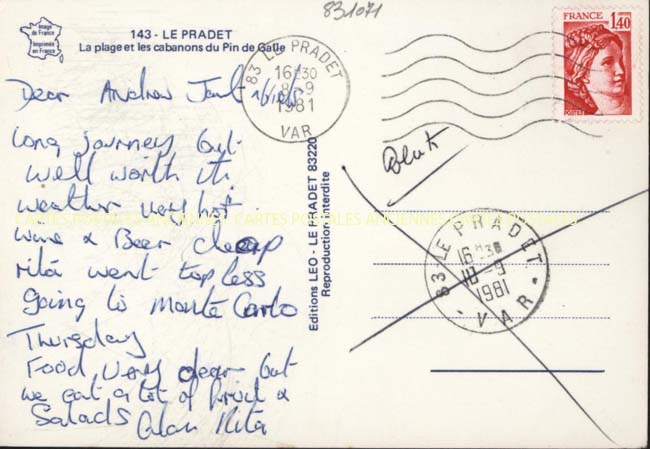 831071
Image
de France
Imprimée
en France
143 - LE PRADET
La plage et les cabanons du Pin de Galle
FRANCE
1,40
83 LE PRADET
16H30
8-9
1981
VAR
Dear Andrew
Long journey but
well worth it
weather very hot
wine & Beer cheap
rita went topless
going to Monte Carlo
Thursday
Food very dear but
we eat a lot of fruit &
Salads Alan Rita
Editions LEO - LE PRADET 83220
Reproduction interdite
CARTES POSTALES ANCIENNES
83 LE PRADET
16H30
10-9
1981
VAR